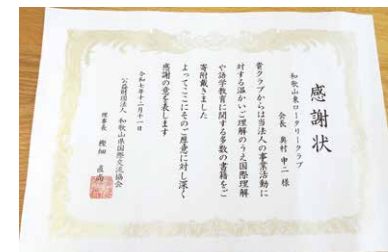 感謝状
和歌山東ロータリークラブ
会長 奥村申二様
貴クラブからは当法人の事業活動に
対する温かいご理解のうえ国際理解
や語学教育に関する多数の書籍をご
寄附戴きました
よってここにそのご厚意に対し深く
感謝の意を表します
令和七年十二月十一日
公益財団法人 和歌山県国際交流協会
理事長 樫畑直尚